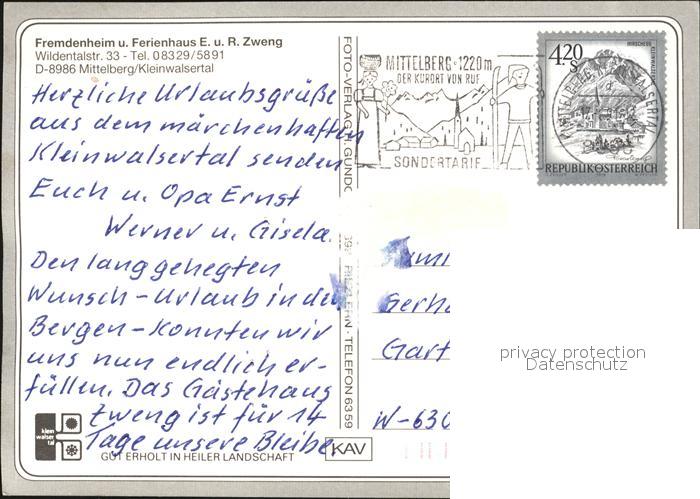 Fremdenheim u. Ferienhaus E. u. R. Zweng
Wildentalstr. 33 - Tel. 08329/5891
D-8986 Mittelberg/Kleinwalsertal
Herzliche Urlaubsgrüße
aus dem märchenhaften
Kleinwalsertal senden
Euch u. Opa Ernst
Werner u. Gisela.
Den lang gehegten
Wunsch-Urlaub in den
Bergen-konnten wir
uns nun endlich er-
füllen. Das Gästehaus
Zweng ist für 14
Tage unsere Bleibe.
klein
walser
tal
GUT ERHOLT IN HEILER LANDSCHAFT
KAV
FOTO-VERLAG A. GUNDO
TELEFON 6359
MITTELBERG · 1220m
DER KURORT VON RUF
SONDERTARIF
4.20
REPUBLIK ÖSTERREICH
Gerha
Gart
W-630
privacy protection
Datenschutz